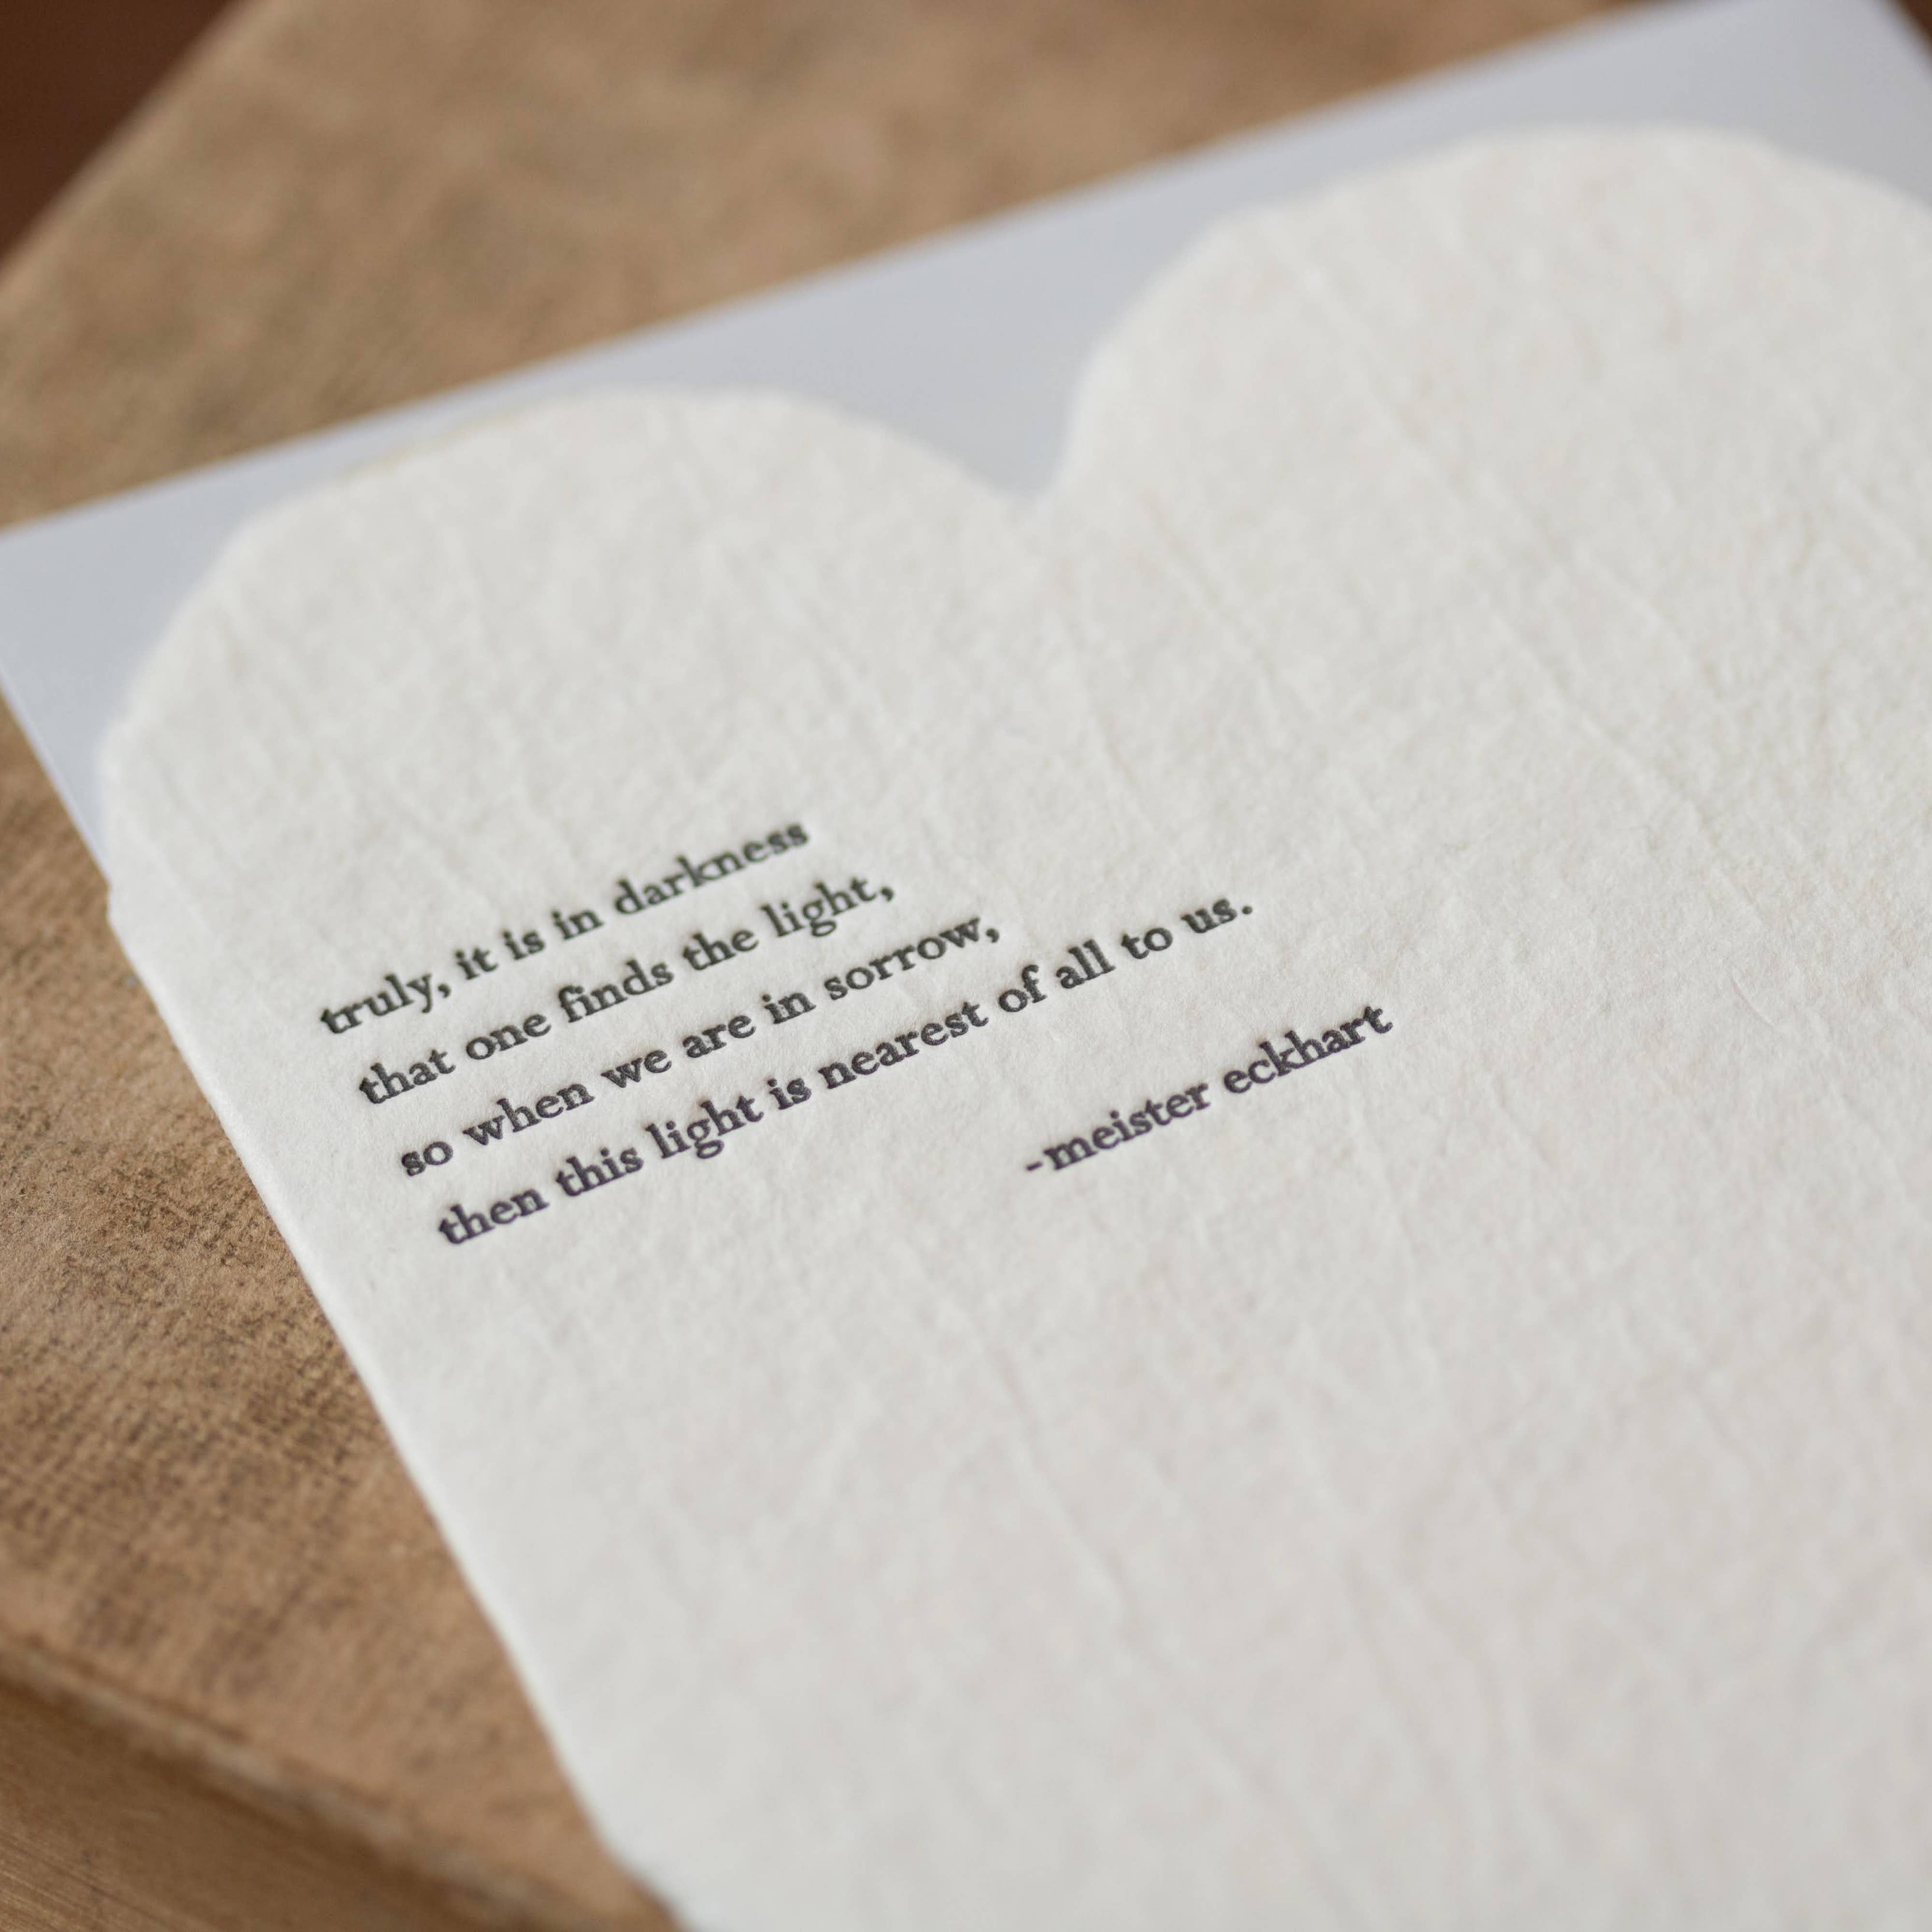 truly, it is in darkness
that one finds the light,
so when we are in sorrow,
then this light is nearest of all to us.
-meister eckhart